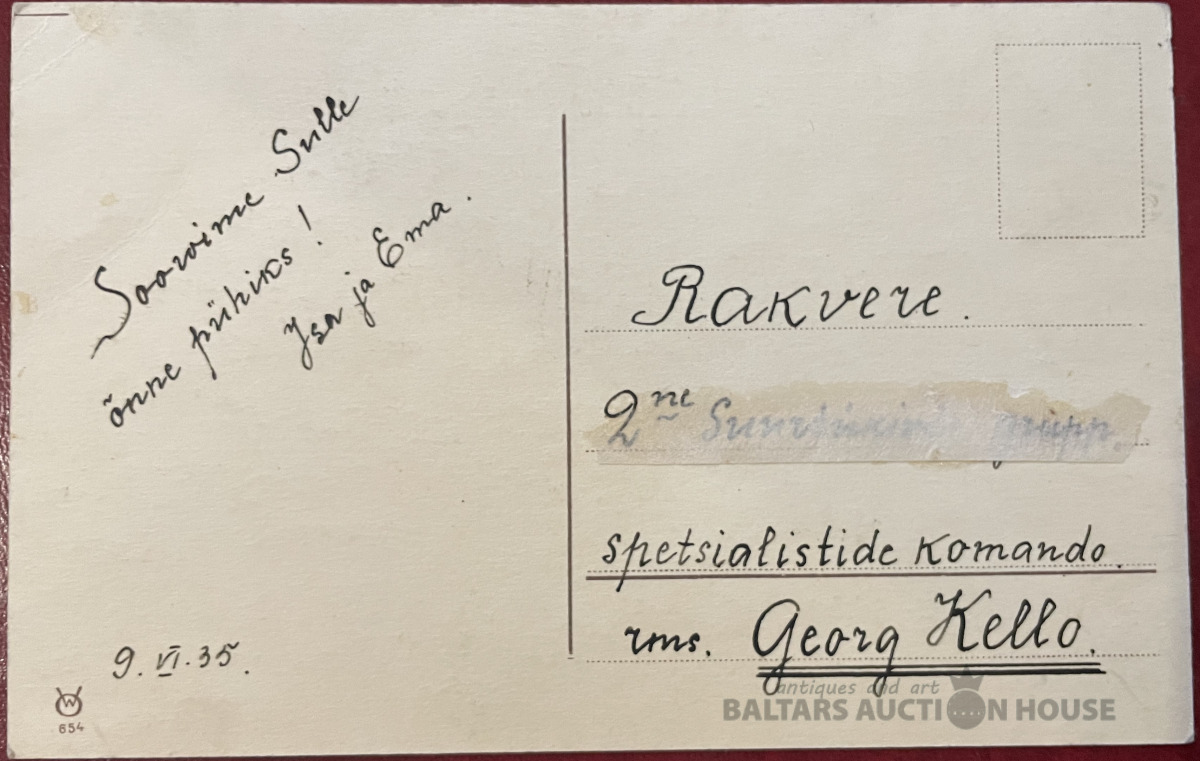 Soowime Sulle
õnne pühiks!
Isa ja Ema.
9. VI. 35.
W
654
Rakvere.
2ne grupp.
spetsialistide komando.
rms. Georg Kello.
antiques and art
BALTARS AUCTION HOUSE